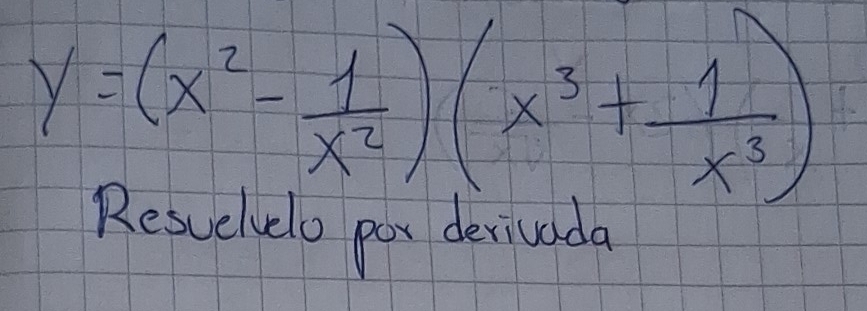 y = (x² - 1/x²)(x³ + 1/x³)
Resuelvelo por derivada